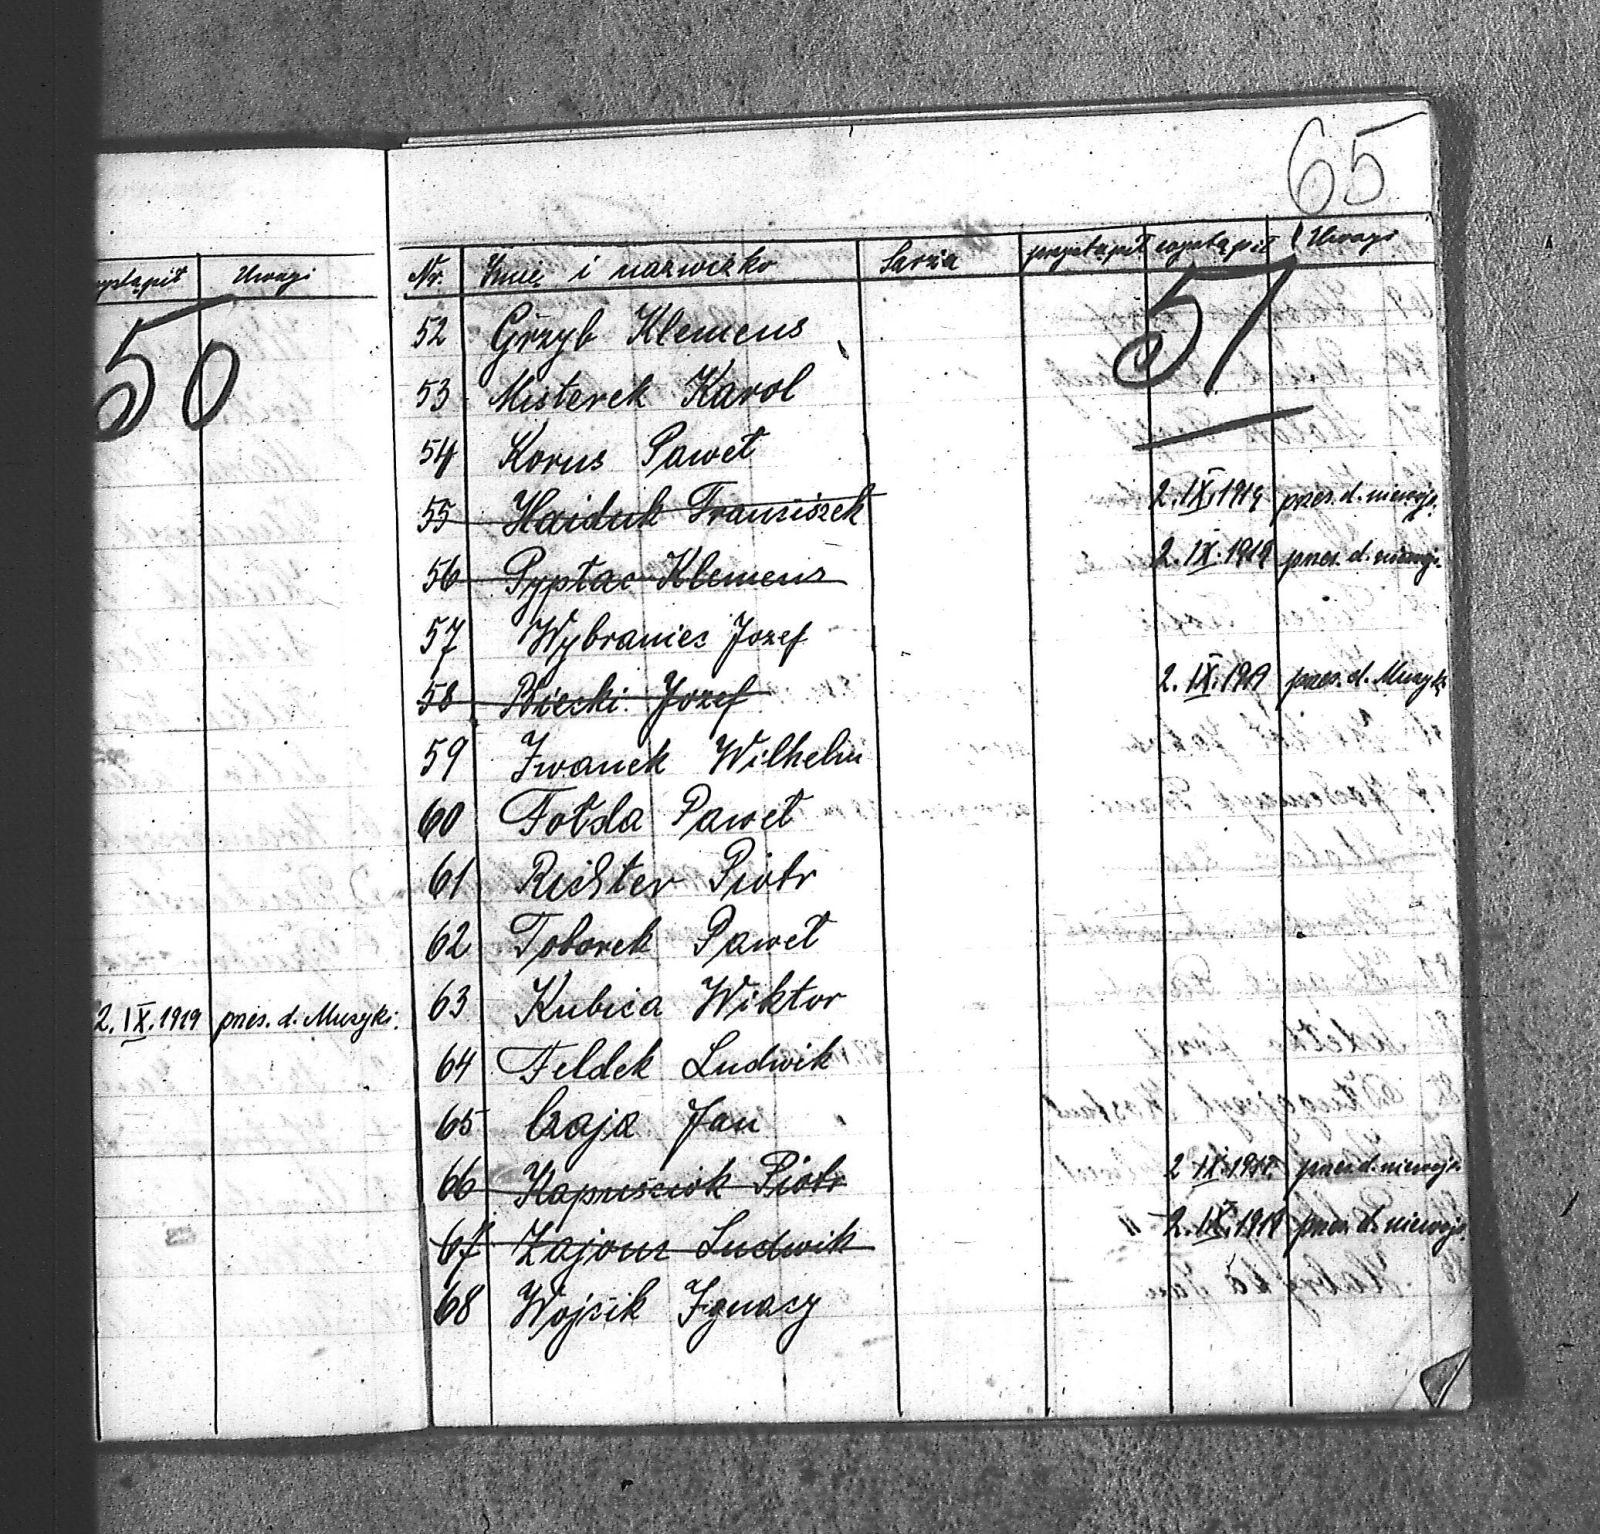 wystąpił Uwagi
50
2. IX. 1919 przes. d. Muzyki.
65
Nr. Imię i nazwizko Sarża przystąpił wystąpił Uwagi
51
52 Grzyb Klemens
53 Misterek Karol
54 Korus Paweł
55 Haiduk Franziszek 2. IX. 1919 przes. d. niewojs.
56 Pyptac Klemens 2. IX. 1919 przes. d. niewojs.
57 Wybraniec Jozef
58 Biecki Jozef 2. IX. 1919 przes. d. Muzyki
59 Iwanek Wilhelm
60 Fołda Paweł
61 Richter Piotr
62 Toborek Paweł
63 Kubica Wiktor
64 Feldek Ludwik
65 Czaja Jan
66 Kapuściok Piotr 2 IX. 1919 przes. d. niewojs.
67 Zajonz Ludwik 2. IX. 1919 przes. d. niewojs.
68 Wojcik Ignacy